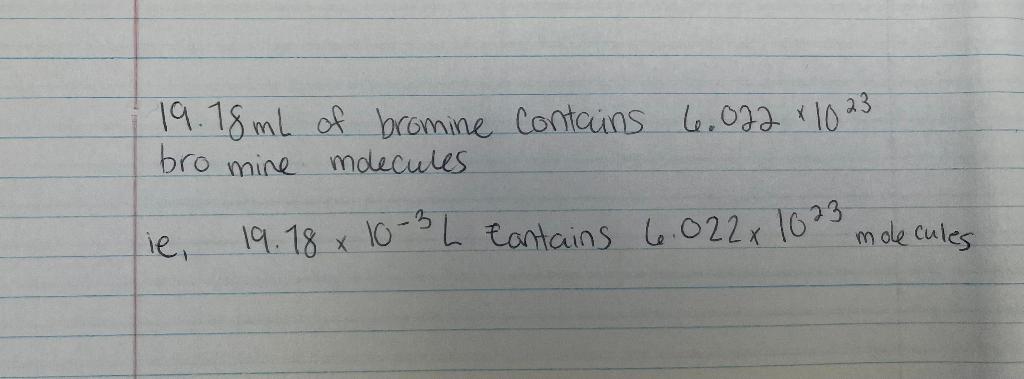 19.78 mL of bromine contains 6.022 × 10²³
bromine molecules
ie, 19.78 × 10⁻³ L contains 6.022 × 10²³ molecules